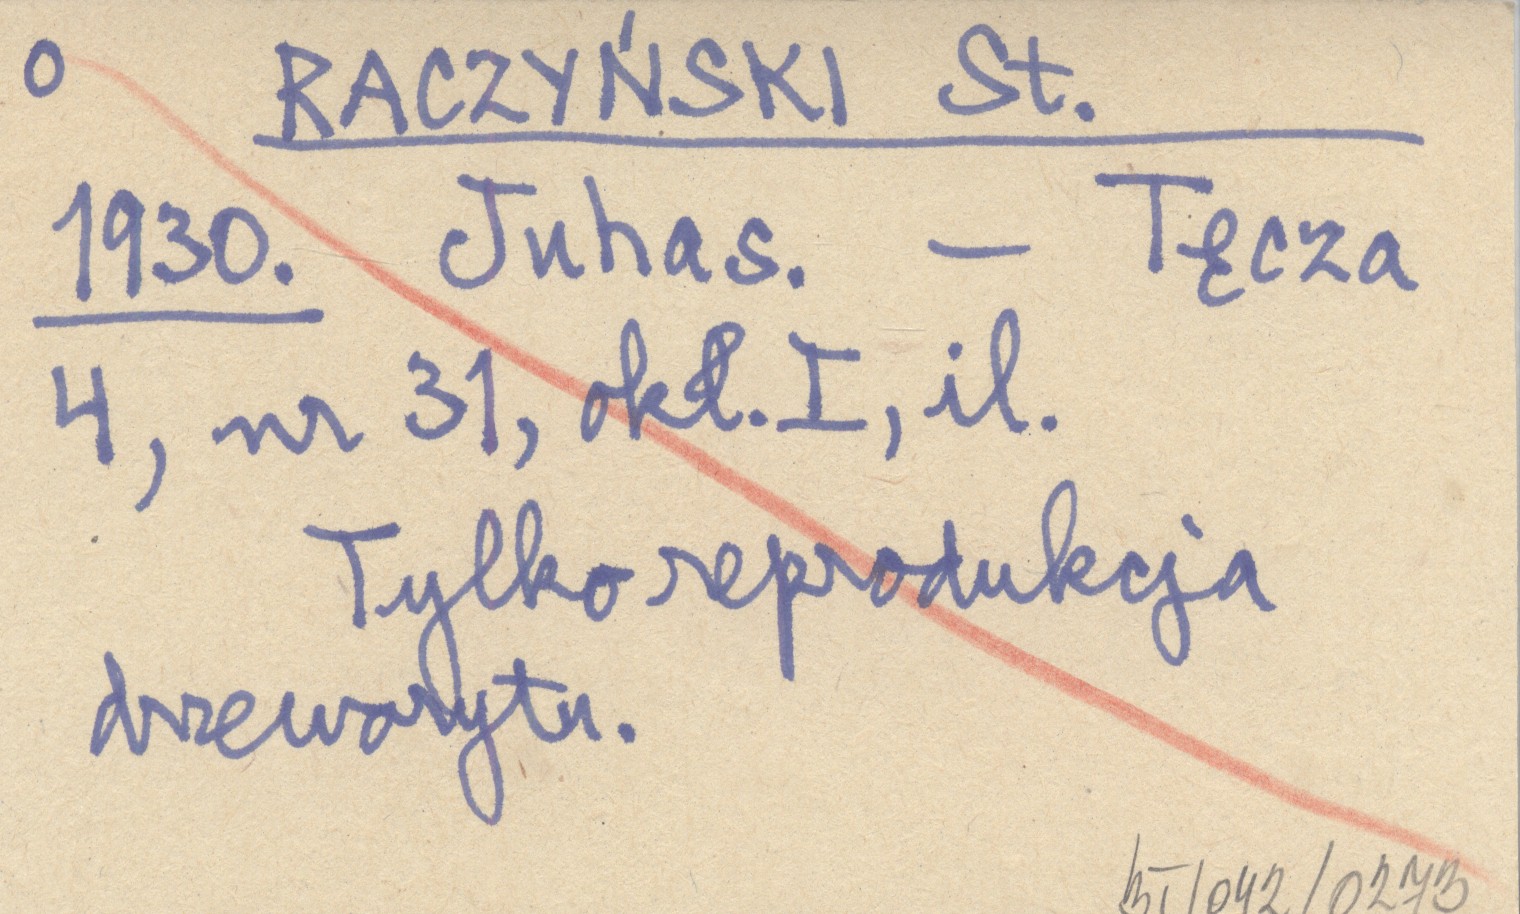 o RACZYŃSKI St.
1930. Juhas. — Tęcza
4, nr 31, okł. I, il.
Tylko reprodukcja
drzeworytu.
/042/0273